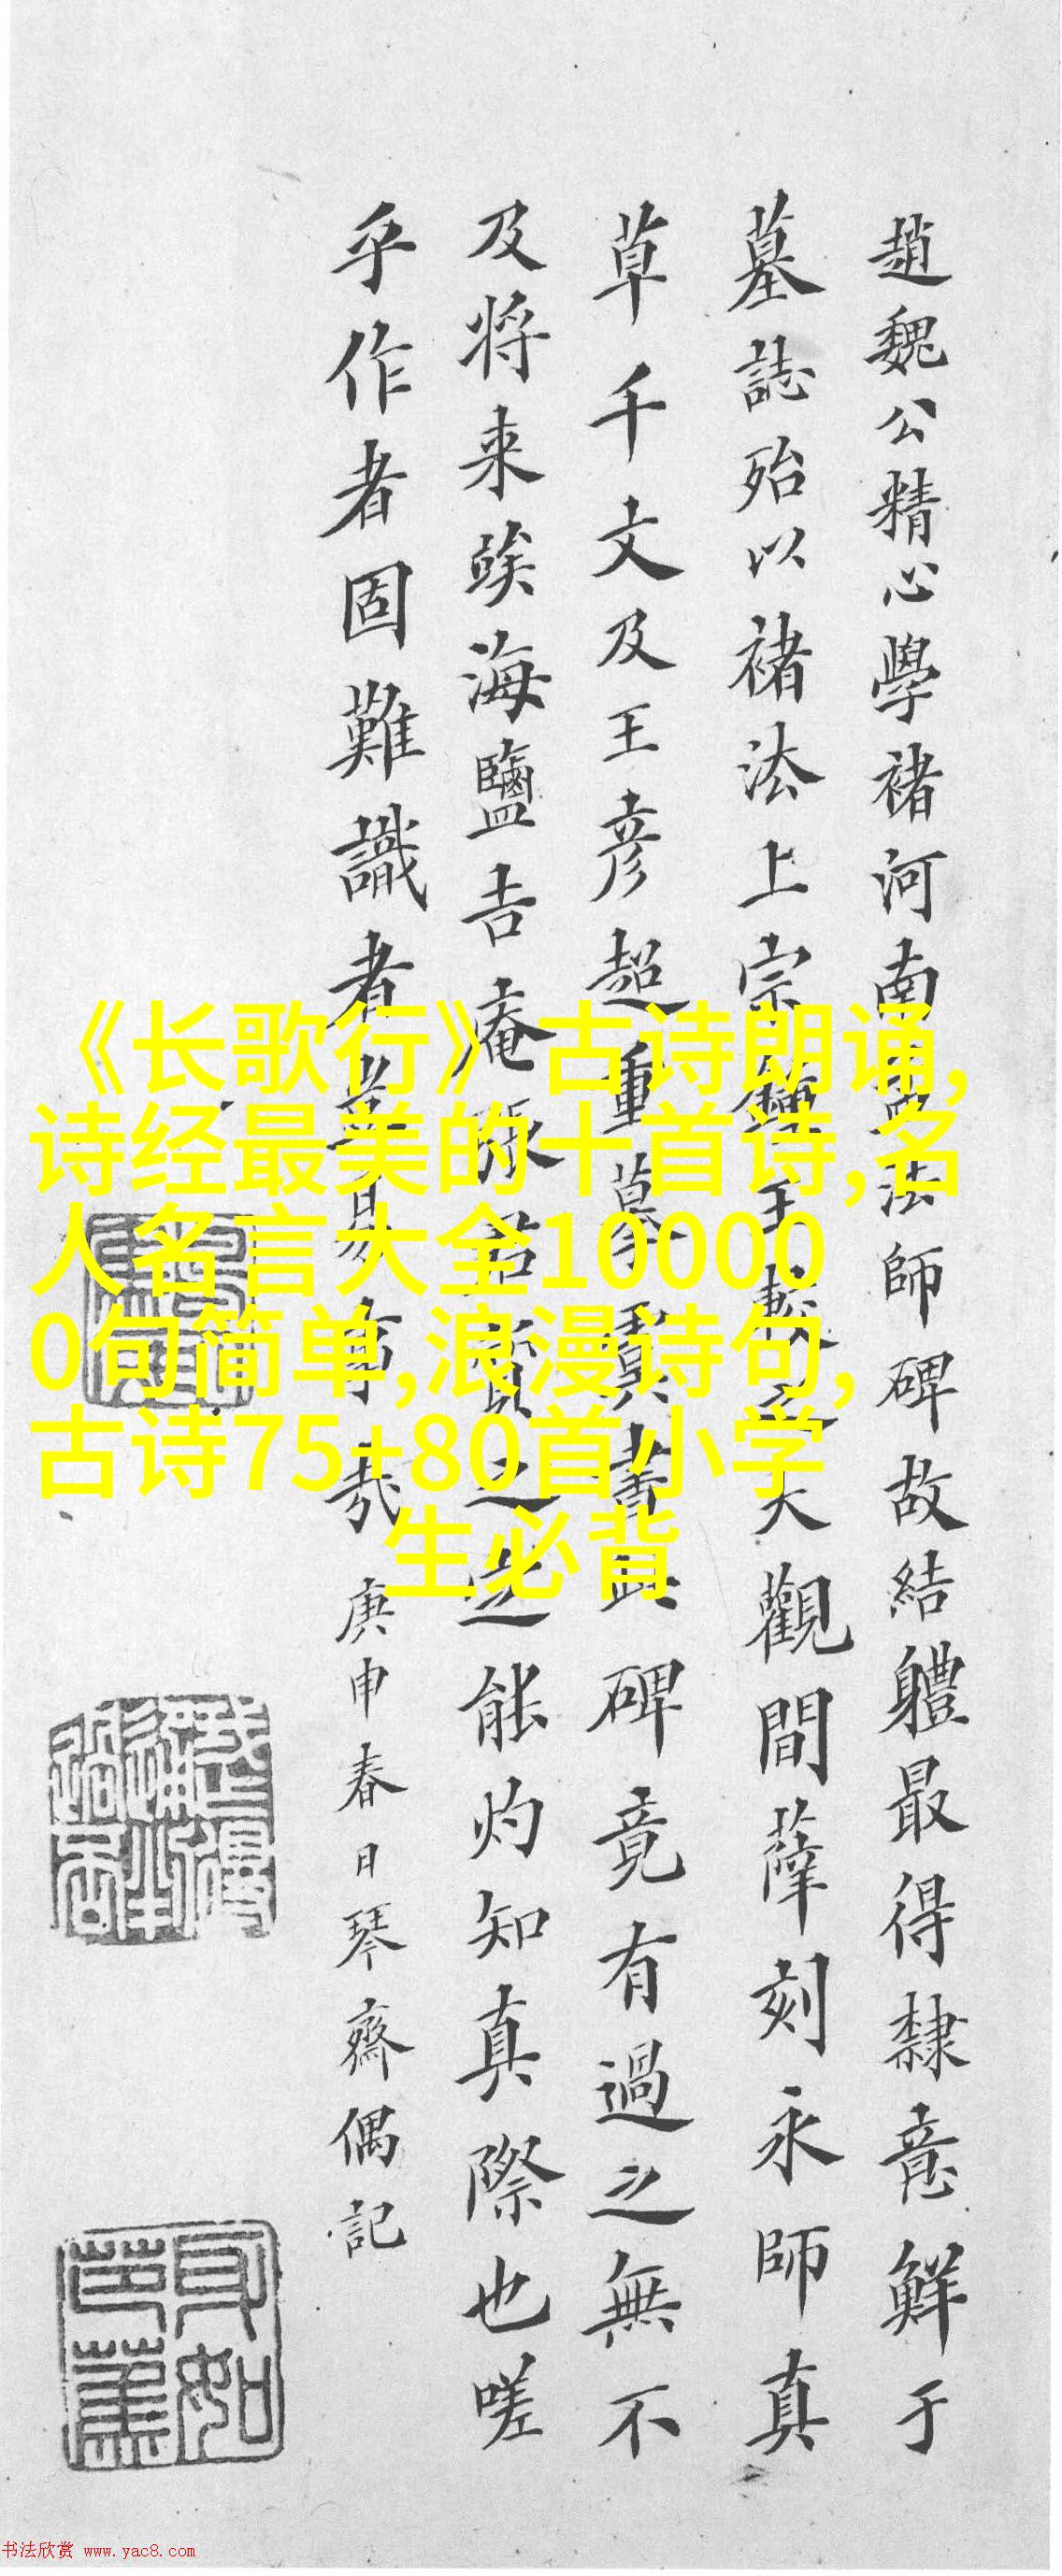 趙魏公精心學褚河南孟法師碑故結軆最得隸意鮮于
墓誌殆以褚法上宗鍾王數之大觀間薛刻永師真
草千文及王彦超重摹虞書碑竟有過之無不
及将来䇐海鹽吉庵張之能灼知真際也嗟
乎作者固難識者㫖易言哉
庚申春日琴齋偶記
《长歌行》古诗朗诵,
诗经最美的十首诗,名
人名言大全10000
0句简单,浪漫诗句,
古诗75+80首小学
生必背
书法欣赏 www.yac8.com